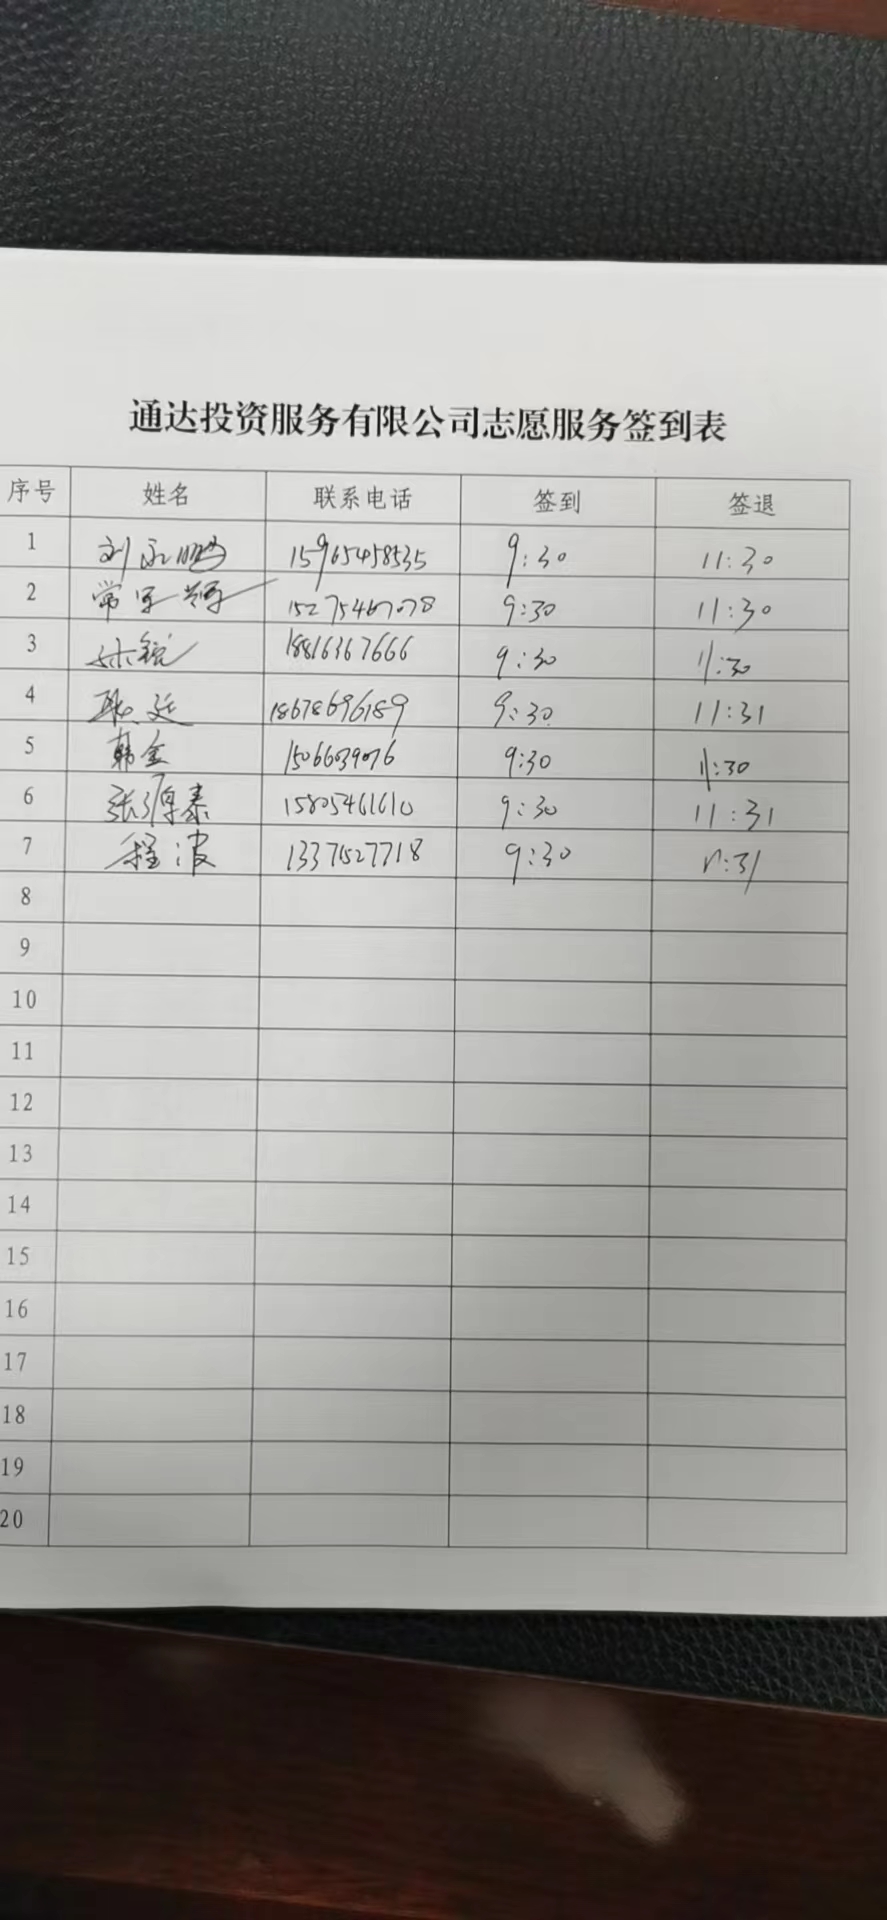 通达投资服务有限公司志愿服务签到表
序号 姓名 联系电话 签到 签退
1 刘永鹏 15965458535 9:30 11:30
2 常 9:30 11:30
3 锐 18816367666 9:30 11:30
4 耿廷 18678696189 9:30 11:31
5 韩金 15066039076 9:30 11:30
6 张源泰 15805461610 9:30 11:31
7 程波 13371527718 9:30 11:31
8
9
10
11
12
13
14
15
16
17
18
19
20